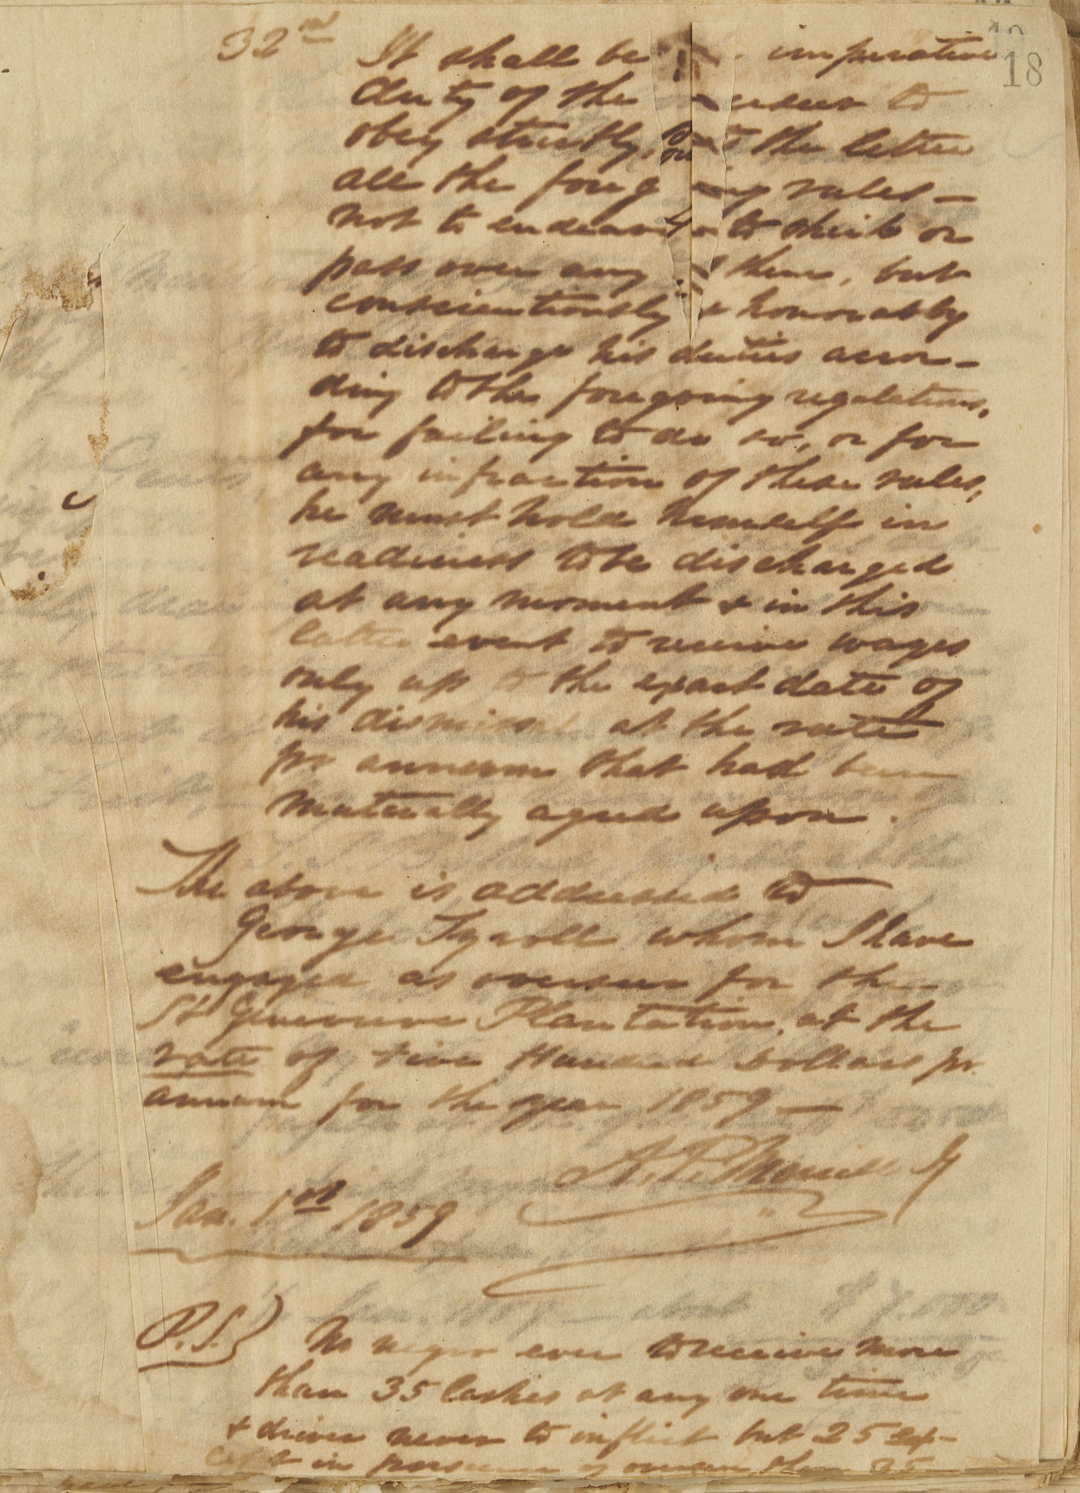 18
32nd It shall be imperative
duty of the overseer to
obey strictly, to the letter
all the foregoing rules —
not to endeavor to shirk or
pass over any of them, but
conscientiously & honorably
to discharge his duties accor-
ding to the foregoing regulations,
for failing to do so, or for
any infraction of these rules,
he must hold himself in
readiness to be discharged
at any moment & in this
latter event to receive wages
only up to the exact date of
his dismissal at the rate
pr annum that had been
mutually agreed upon.
The above is addressed to
George whom I have
engaged as overseer for the
St Genevieve Plantation, at the
rate of Five Hundred Dollars pr.
annum for the year 1859 —
A. P. Merrill Jr
Jan. 1st 1859
P.S. No negro ever to receive more
than 35 lashes at any one time
& driver never to inflict but 25 ex-
cept in presence of overseer then 35